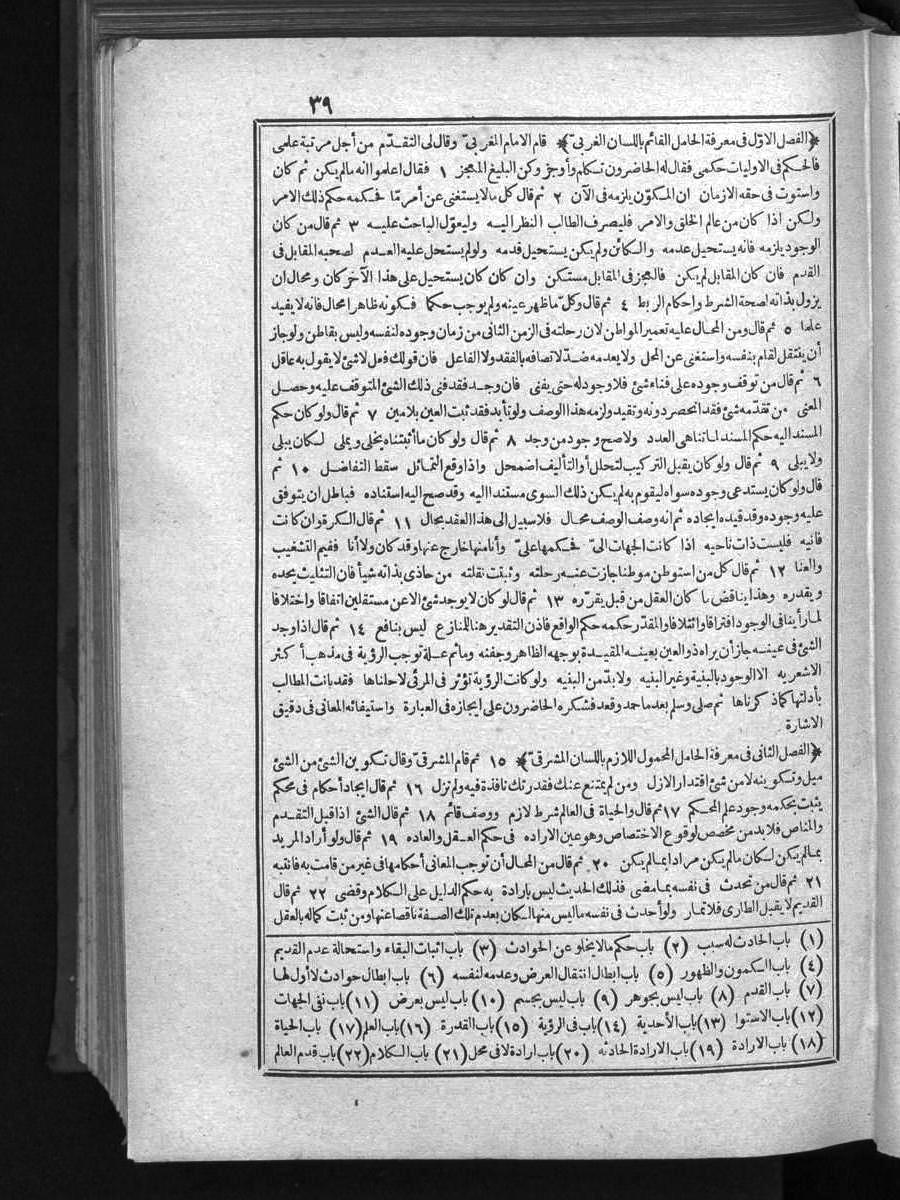 ٣٩
﴿الفصل الاوّل فى معرفة الحامل القائم باللسان الغربىّ﴾ قام الامام المغربىّ وقال لى التقدّم من أجل مرتبة علمى
فالحكم فى الاوليات حكمى فقال له الحاضرون تكلم وأوجز وكن البليغ المعجز ١ فقال اعلموا انه مالم يكن ثم كان
واستوت فى حقه الازمان ان المكوّن يلزمه فى الآن ٢ ثم قال كل مالا يستغنى عن أمر مّا فحكمه حكم ذلك الامر
ولكن اذا كان من عالم الخلق والامر فليصرف الطالب النظر اليه وليعوّل الباحث عليه ٣ ثم قال من كان
الوجود يلزمه فانه يستحيل عدمه والكائن ولم يكن يستحيل قدمه ولو لم يستحل عليه العدم لصحبه المقابل فى
القدم فان كان المقابل لم يكن فالعجز فى المقابل مستكن وان كان كان يستحيل على هذا الآخر كان ومحال ان
يزول بذاته لصحة الشرط وإحكام الربط ٤ ثم قال وكل ما ظهر عينه ولم يوجب حكما فكونه ظاهرا محال فانه لا يفيد
علما ٥ ثم قال ومن المحال عليه تعمير المواطن لان رحلته فى الزمن الثانى من زمان وجوده لنفسه وليس بقاطن ولو جاز
أن ينتقل لقام بنفسه واستغنى عن المحل ولا يعدمه ضدّ لاتصافه بالفقد ولا الفاعل فان قولك فعل لا شئ لا يقول به عاقل
٦ ثم قال من توقف وجوده على فناء شئ فلا وجود له حتى يفنى فان وجد فقد فنى ذلك الشئ المتوقف عليه وحصل
المعنى من تقدّمه شئ فقد انحصر دونه وتقيد ولزمه هذا الوصف ولو تأبد فقد ثبت العين بلا مين ٧ ثم قال ولو كان حكم
المسند اليه حكم المسند لما تناهى العدد ولا صح وجود من وجد ٨ ثم قال ولو كان ما أثبتناه يخلى ويملى لكان يبلى
ولا يبلى ٩ ثم قال ولو كان يقبل التركيب لتحلل أو التأليف اضمحل واذا وقع التماثل سقط التفاضل ١٠ ثم
قال ولو كان يستدعى وجوده سواه ليقوم به لم يكن ذلك السوى مستندا اليه وقد صح اليه استناده فباطل ان يتوقف
عليه وجوده وقد قيده ايجاده ثم انه وصف الوصف محال فلا سبيل الى هذا العقد بحال ١١ ثم قال الكرة وان كانت
فانيه فليست ذات ناحيه اذا كانت الجهات الىّ فحكمها علىّ وأنا منها خارج عنها وقد كان ولا أنا ففيم التشغيب
والعنا ١٢ ثم قال كل من استوطن موطنا جازت عنه رحلته وثبتت نقلته من حاذى بذاته شيأ فان التثليث يحده
ويقدره وهذا يناقض ما كان العقل من قبل يقرّره ١٣ ثم قال لو كان لا يوجد شئ الا عن مستقلين اتفاقا واختلافا
لما رأينا فى الوجود افتراقا وائتلافا والمقدّر حكمه حكم الواقع فاذن التقدير هنا للمنازع ليس بنافع ١٤ ثم قال اذا وجد
الشئ فى عينه جاز أن يراه ذو العين بعينه المقيدة بوجهه الظاهر وجفنه وما ثم علة توجب الرؤية فى مذهب أكثر
الاشعريه الا الوجود بالبنية وغير البنيه ولا بدّ من البنيه ولو كانت الرؤية تؤثر فى المرئى لاحلناها فقد بانت المطالب
بأدلتها كما ذكرناها ثم صلى وسلم بعد ما حمد وقعد فشكره الحاضرون على ايجازه فى العبارة واستيفائه المعانى فى دقيق
الاشارة
﴿الفصل الثانى فى معرفة الحامل المحمول اللازم باللسان المشرقىّ﴾ ١٥ ثم قام المشرقىّ وقال تكوين الشئ من الشئ
ميل وتكوينه لا من شئ اقتدار الازل ومن لم يمتنع عنك فقدرتك نافذة فيه ولم تزل ١٦ ثم قال ايجاد أحكام فى محكم
يثبت بحكمه وجود علم المحكم ١٧ ثم قال والحياة فى العالم شرط لازم ووصف قائم ١٨ ثم قال الشئ اذا قبل التقدم
والمناص فلا بد من مخصص لوقوع الاختصاص وهو عين الاراده فى حكم العقل والعاده ١٩ ثم قال ولو أراد المريد
بما لم يكن لكان مالم يكن مرادا بما لم يكن ٢٠ ثم قال من المحال أن توجب المعانى أحكامها فى غير من قامت به فانتبه
٢١ ثم قال من تحدث فى نفسه بما مضى فذلك الحديث ليس بارادة به حكم الدليل على الكلام وقضى ٢٢ ثم قال
القديم لا يقبل الطارى فلا تمار ولو أحدث فى نفسه ما ليس منها لكان بعدم تلك الصفة ناقصا عنها ومن ثبت كماله بالعقل
(١) باب الحادث له سبب (٢) باب حكم مالا يخلو عن الحوادث (٣) باب اثبات البقاء واستحالة عدم القديم
(٤) باب الكمون والظهور (٥) باب ابطال انتقال العرض وعدمه لنفسه (٦) باب ابطال حوادث لا أول لها
(٧) باب القدم (٨) باب ليس بجوهر (٩) باب ليس بجسم (١٠) باب ليس بعرض (١١) باب نفى الجهات
(١٢) باب الاستوا (١٣) باب الأحدية (١٤) باب فى الرؤية (١٥) باب القدرة (١٦) باب العلم (١٧) باب الحياة
(١٨) باب الارادة (١٩) باب الارادة الحادثه (٢٠) باب ارادة لا فى محل (٢١) باب الكلام (٢٢) باب قدم العالم